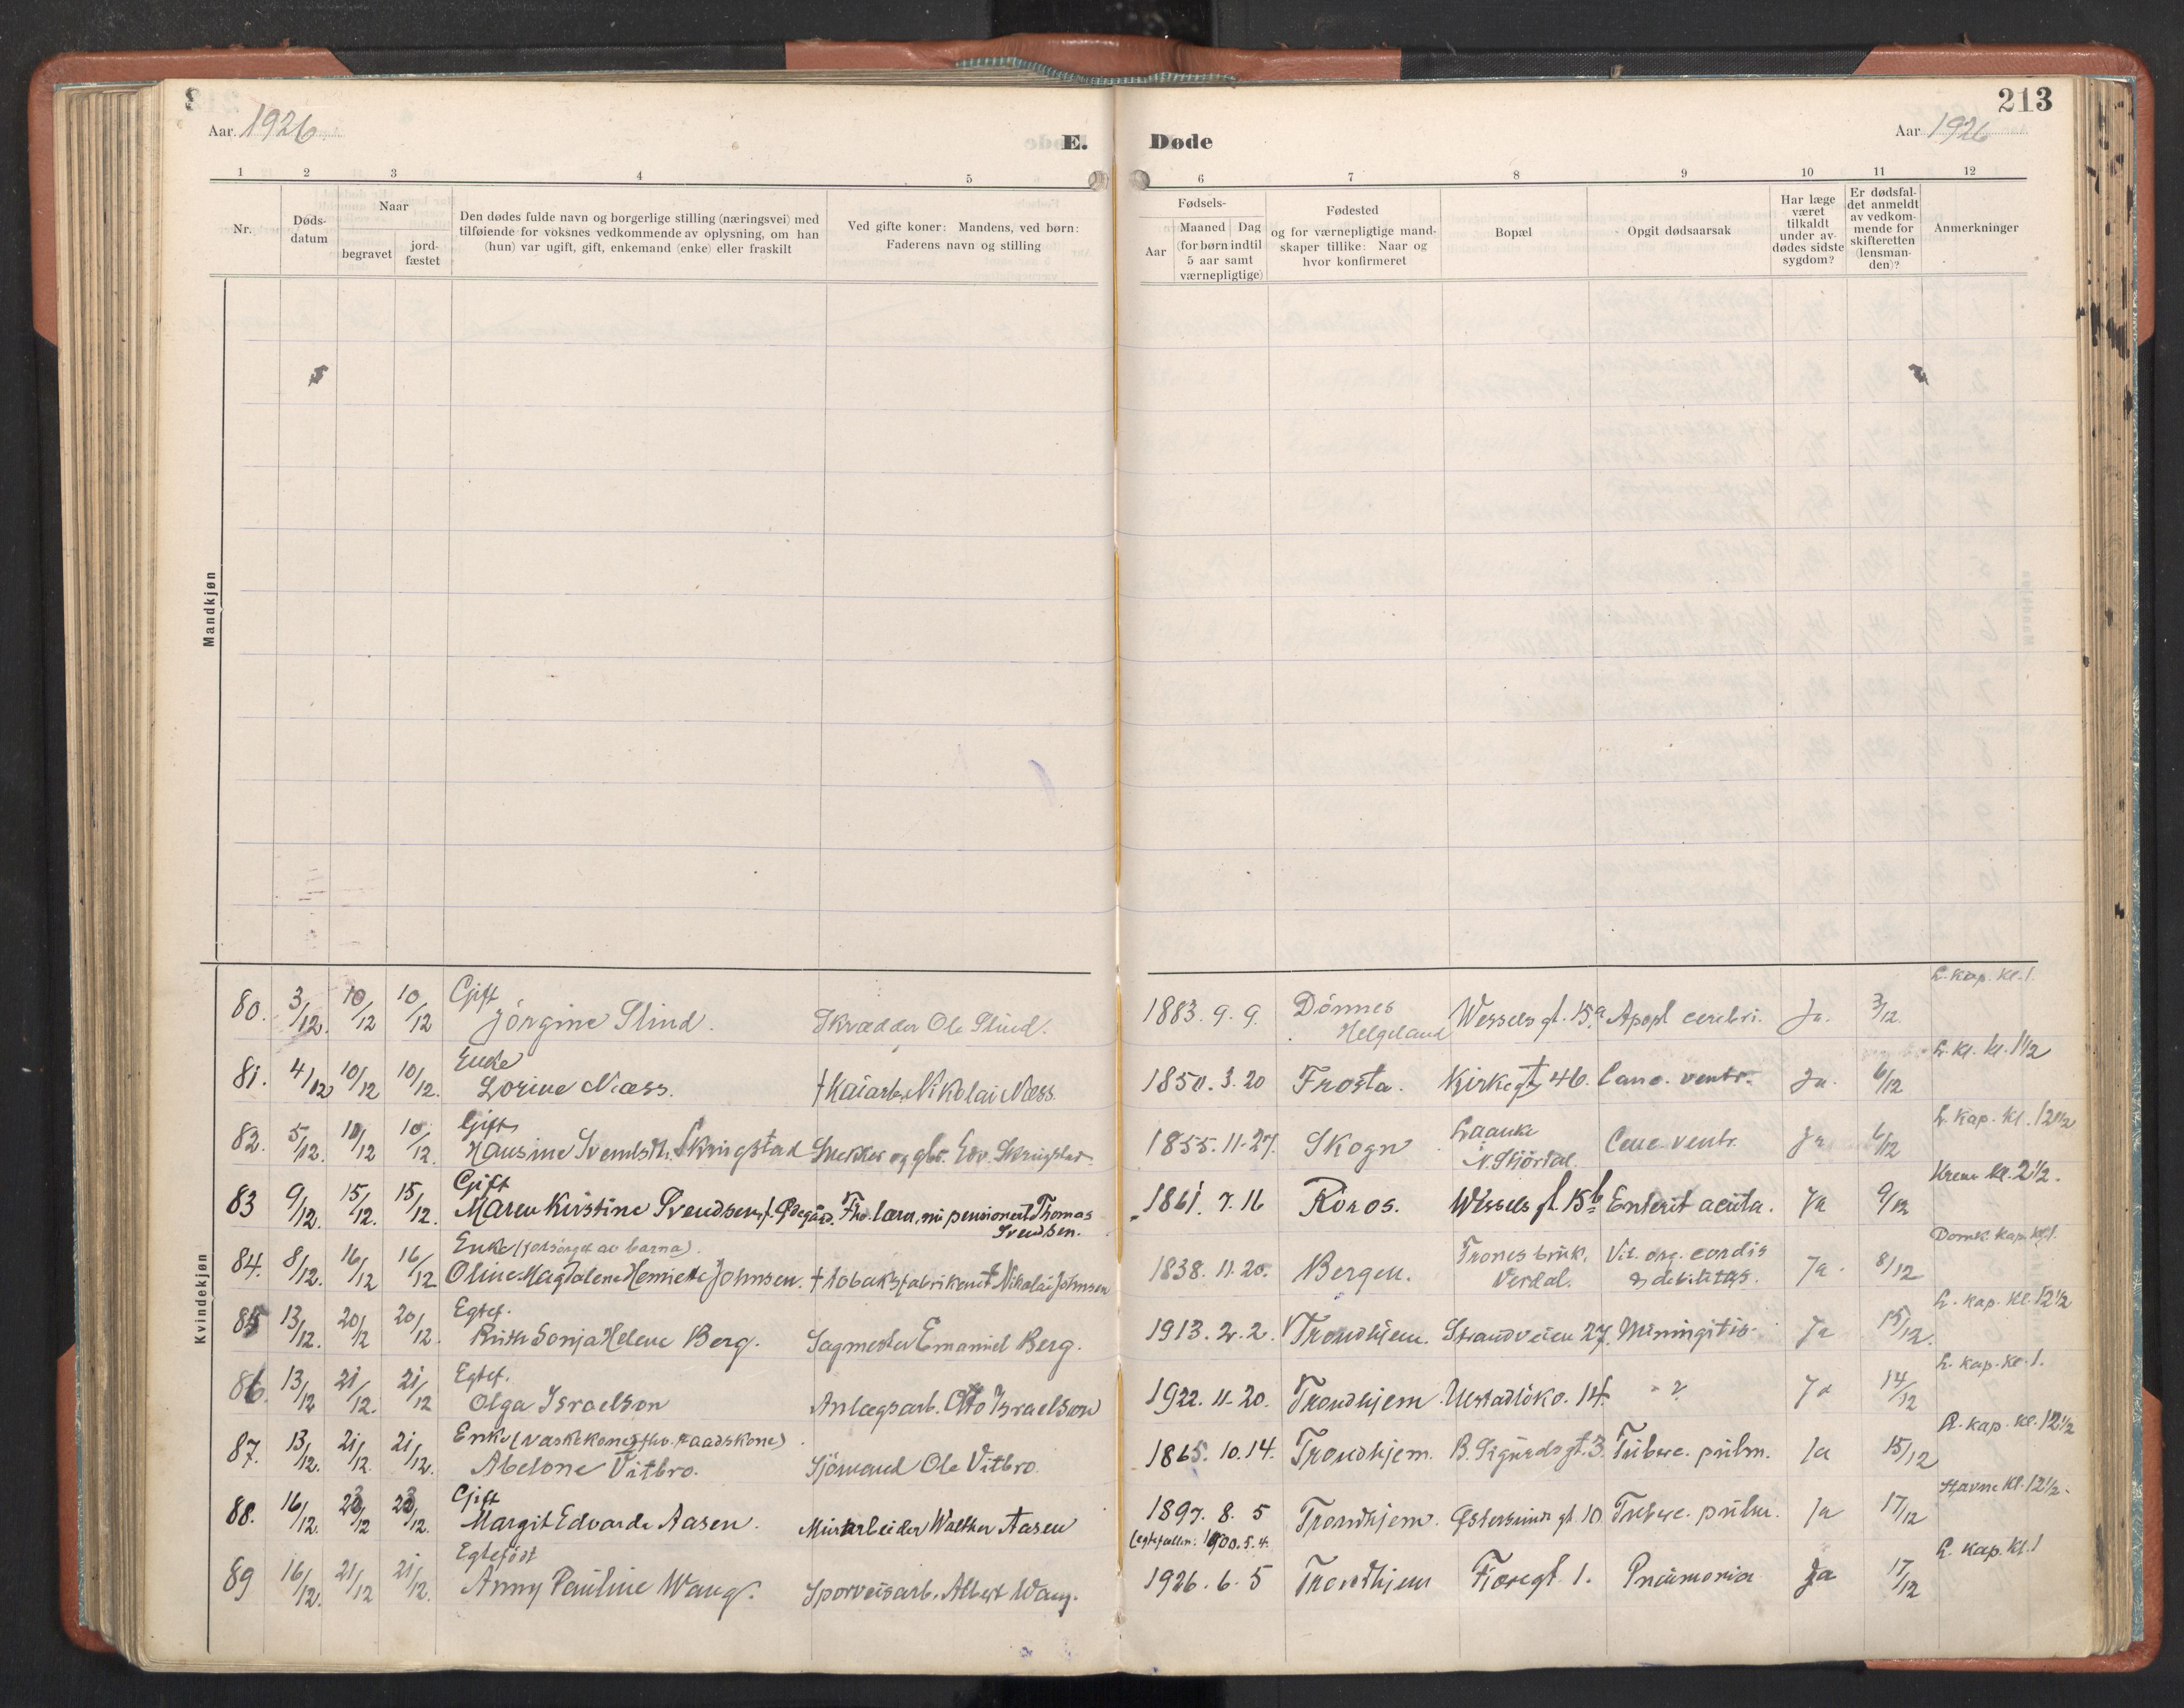 213
Aar 1926
E.
Døde
Aar 1926
1 2 3 4 5 6 7 8 9 10 11 12
Nr.
Døds-
datum
Naar
begravet
jord-
fæstet
Den dødes fulde navn og borgerlige stilling (næringsvei) med
tilføiende for voksnes vedkommende av oplysning, om han
(hun) var ugift, gift, enkemand (enke) eller fraskilt
Ved gifte koner: Mandens, ved børn:
Faderens navn og stilling
Fødsels-
Aar
Maaned Dag
(for børn indtil
5 aar samt
værnepligtige)
Fødested
og for værnepligtige mand-
skaper tillike: Naar og
hvor konfirmeret
Bopæl
Opgit dødsaarsak
Har læge
været
tilkaldt
under av-
dødes sidste
sygdom?
Er dødsfal-
det anmeldt
av vedkom-
mende for
skifteretten
(lensman-
den)?
Anmerkninger
Mandkjøn
Kvindekjøn
80. 3/12. 10/12 10/12 Gift
Jörgine Slind. Skrædder Ole Slind. 1883. 9. 9. Dönnes
Helgeland Wessels gt. 15a Apopl. cerebri. Ja. 3/12. L. kap. kl. 1.
81. 4/12 10/12 10/12. Enke
Lorine Næss. † Kaiarb. Nikolai Næss. 1850. 3. 20 Frosta. Kirkegt 46. Canc. ventr. Ja. 6/12 L. kl. 1 1/2
82. 5/12. 10/12 10/12. Gift
Hansine Skringstad Snekker og gbr. Edv. Skringstad 1855. 11. 27. Skogn Laanke
N. Stjördal. Canc. ventr. Ja 6/12 L. kap. kl. 12 1/2
83 9/12. 15/12. 15/12. Gift
Maren Kirstine Svendsen, f. Ödegård. Fhv. pensionert Thomas
Svendsen. 1861. 7. 16 Röros. Wessels gt. 15b Enterit acuta. Ja 9/12 Krem kl. 2 1/2.
84. 8/12. 16/12 16/12 Enke (forsörget av barna).
Oline Magdalene Henriette Johnsen. † tobaksfabrikant Nikolai Johnsen 1838. 11. 20. Bergen. Trones bruk.
Verdal. Vit. org. cordis
& debilitas. Ja. 8/12 Domk. kap. kl. 1.
85 13/12. 20/12 20/12. Egtef.
Ruth Sonja Helene Berg. Sagmester Emanuel Berg. 1913. 2. 2. Trondhjem. Strandveien 27. Miningitis. Ja 15/12. L. kap. kl. 12 1/2
86. 13/12 21/12. 21/12 Egtef.
Olga Israelson Anlægsarb. Otto Israelson 1922. 11. 20. Trondhjem. Ulstadlökv. 14. ? Ja 14/12 L. kap. kl. 1.
87. 13/12. 21/12. 21/12. Enke (vaskekone, fhv. raadskone)
Abelone Vitbro. Sjömand Ole Vitbro. 1865. 10. 14. Trondhjem. B. Sigurds gt. 3. Tuberc. pulm. Ja 15/12 L. kap. kl. 12 1/2
88. 16/12. 23/12 23/12. Gift
Margit Edvarda Aasen. Murarbeider Walther Aasen 1897. 8. 5
(egtefællen: 1900. 5. 4. Trondhjem. Östersunds gt. 10 Tuberc. pulm. Ja 17/12 Havne kl. 12 1/2.
89 16/12. 21/12 21/12. Egtefödt
Anny Pauline Wang. Sporveisarb. Albert Wang. 1926. 6. 5 Trondhjem Fjæregt. 1. Pneumonia Ja 17/12 L. kap. kl. 1